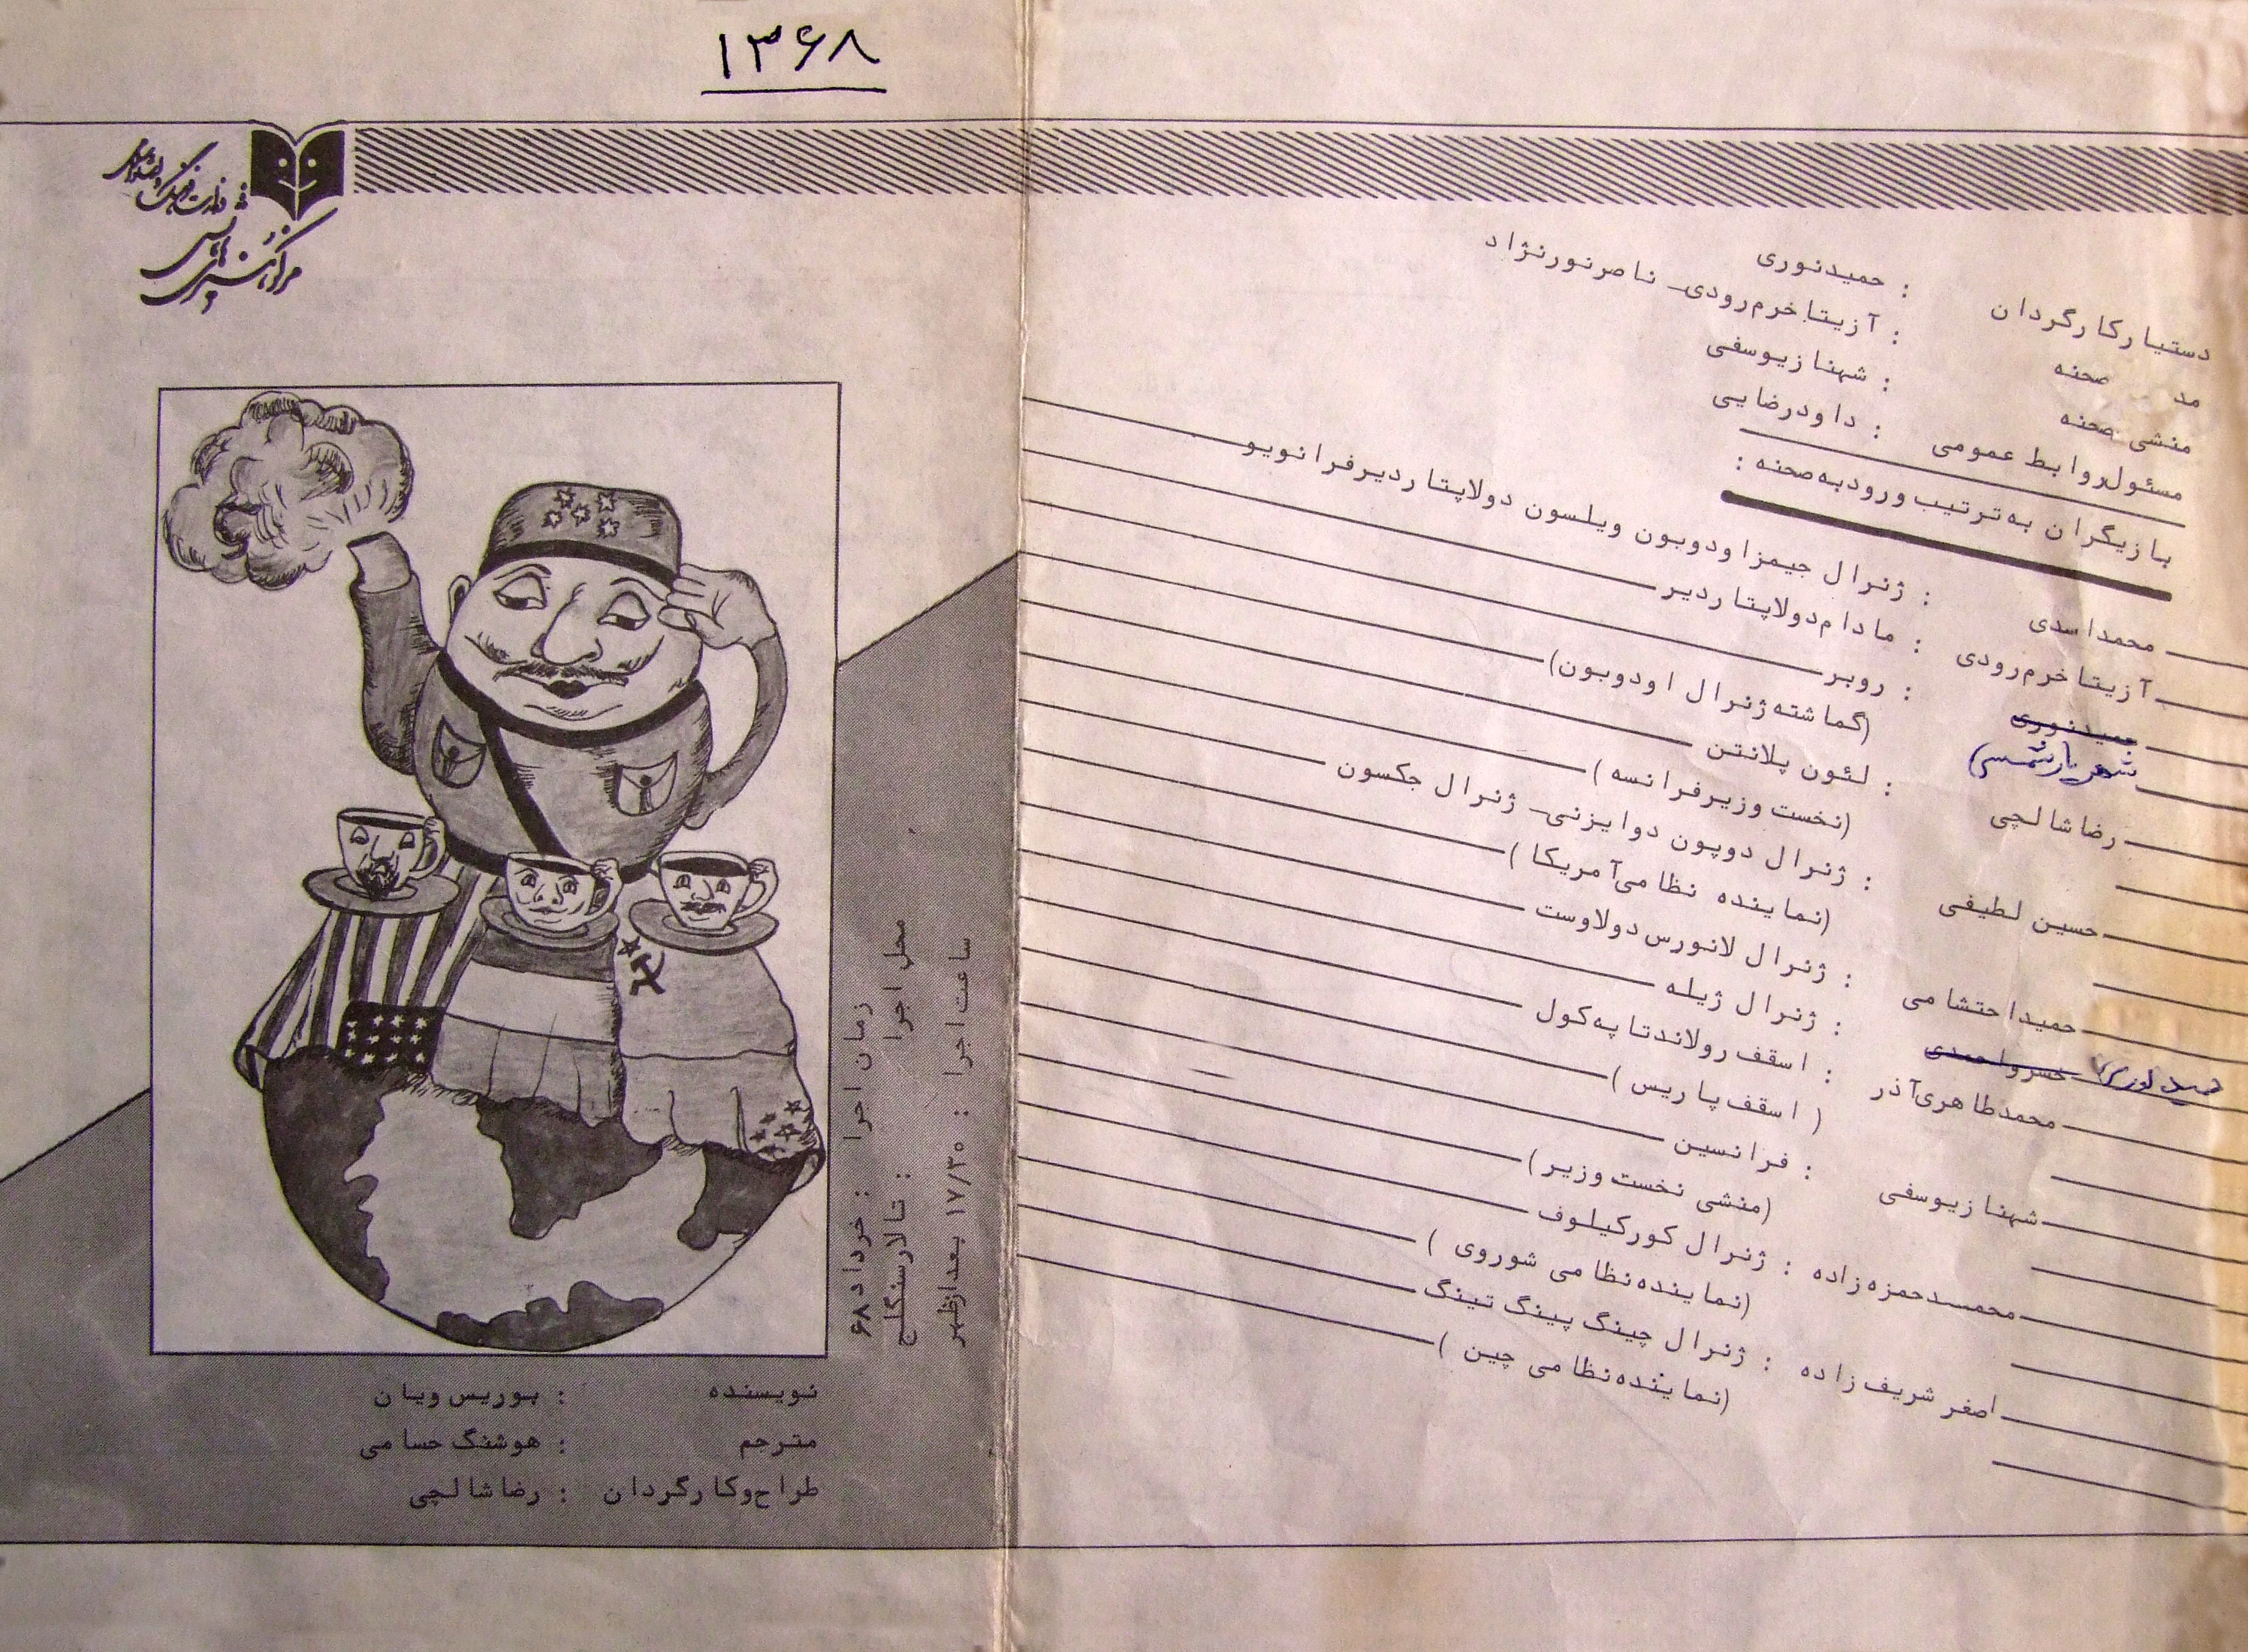 ۱۳۶۸
وزارت فرهنگ و ارشاد اسلامی
مرکز هنرهای نمایشی
نویسنده : بوریس ویان
مترجم : هوشنگ حسامی
طراح وکارگردان : رضا شالچی
زمان اجرا : خرداد ۶۸
محل اجرا : تالار سنگلج
ساعت اجرا : ۱۷/۳۰ بعدازظهر
دستیار کارگردان : حمید نوری
مد صحنه : آزیتا خرم‌رودی - ناصر نورنژاد
منشی صحنه : شهناز یوسفی
مسئول روابط عمومی : داود رضایی
بازیگران به ترتیب ورود به صحنه :
محمد اسدی : ژنرال جیمز اودوبون ویلسون دولاپتاردیر فرانویو
آزیتا خرم‌رودی : مادام دولاپتاردیر
حمید نوری : روبر
شهریار شمسی (گماشته ژنرال اودوبون)
رضا شالچی : لئون پلانتن
(نخست وزیر فرانسه)
حسین لطیفی : ژنرال دوپون دوایزنی - ژنرال جکسون
(نماینده نظامی آمریکا)
حمید احتشامی : ژنرال لانورس دولاوست
حمید نوری خسرو احمدی : ژنرال ژیله
محمد طاهری آذر : اسقف رولاند تاپه کول
(اسقف پاریس)
شهناز یوسفی : فرانسین
(منشی نخست وزیر)
محمد حمزه زاده : ژنرال کورکیلوف
(نماینده نظامی شوروی)
اصغر شریف زاده : ژنرال چینگ پینگ تینگ
(نماینده نظامی چین)